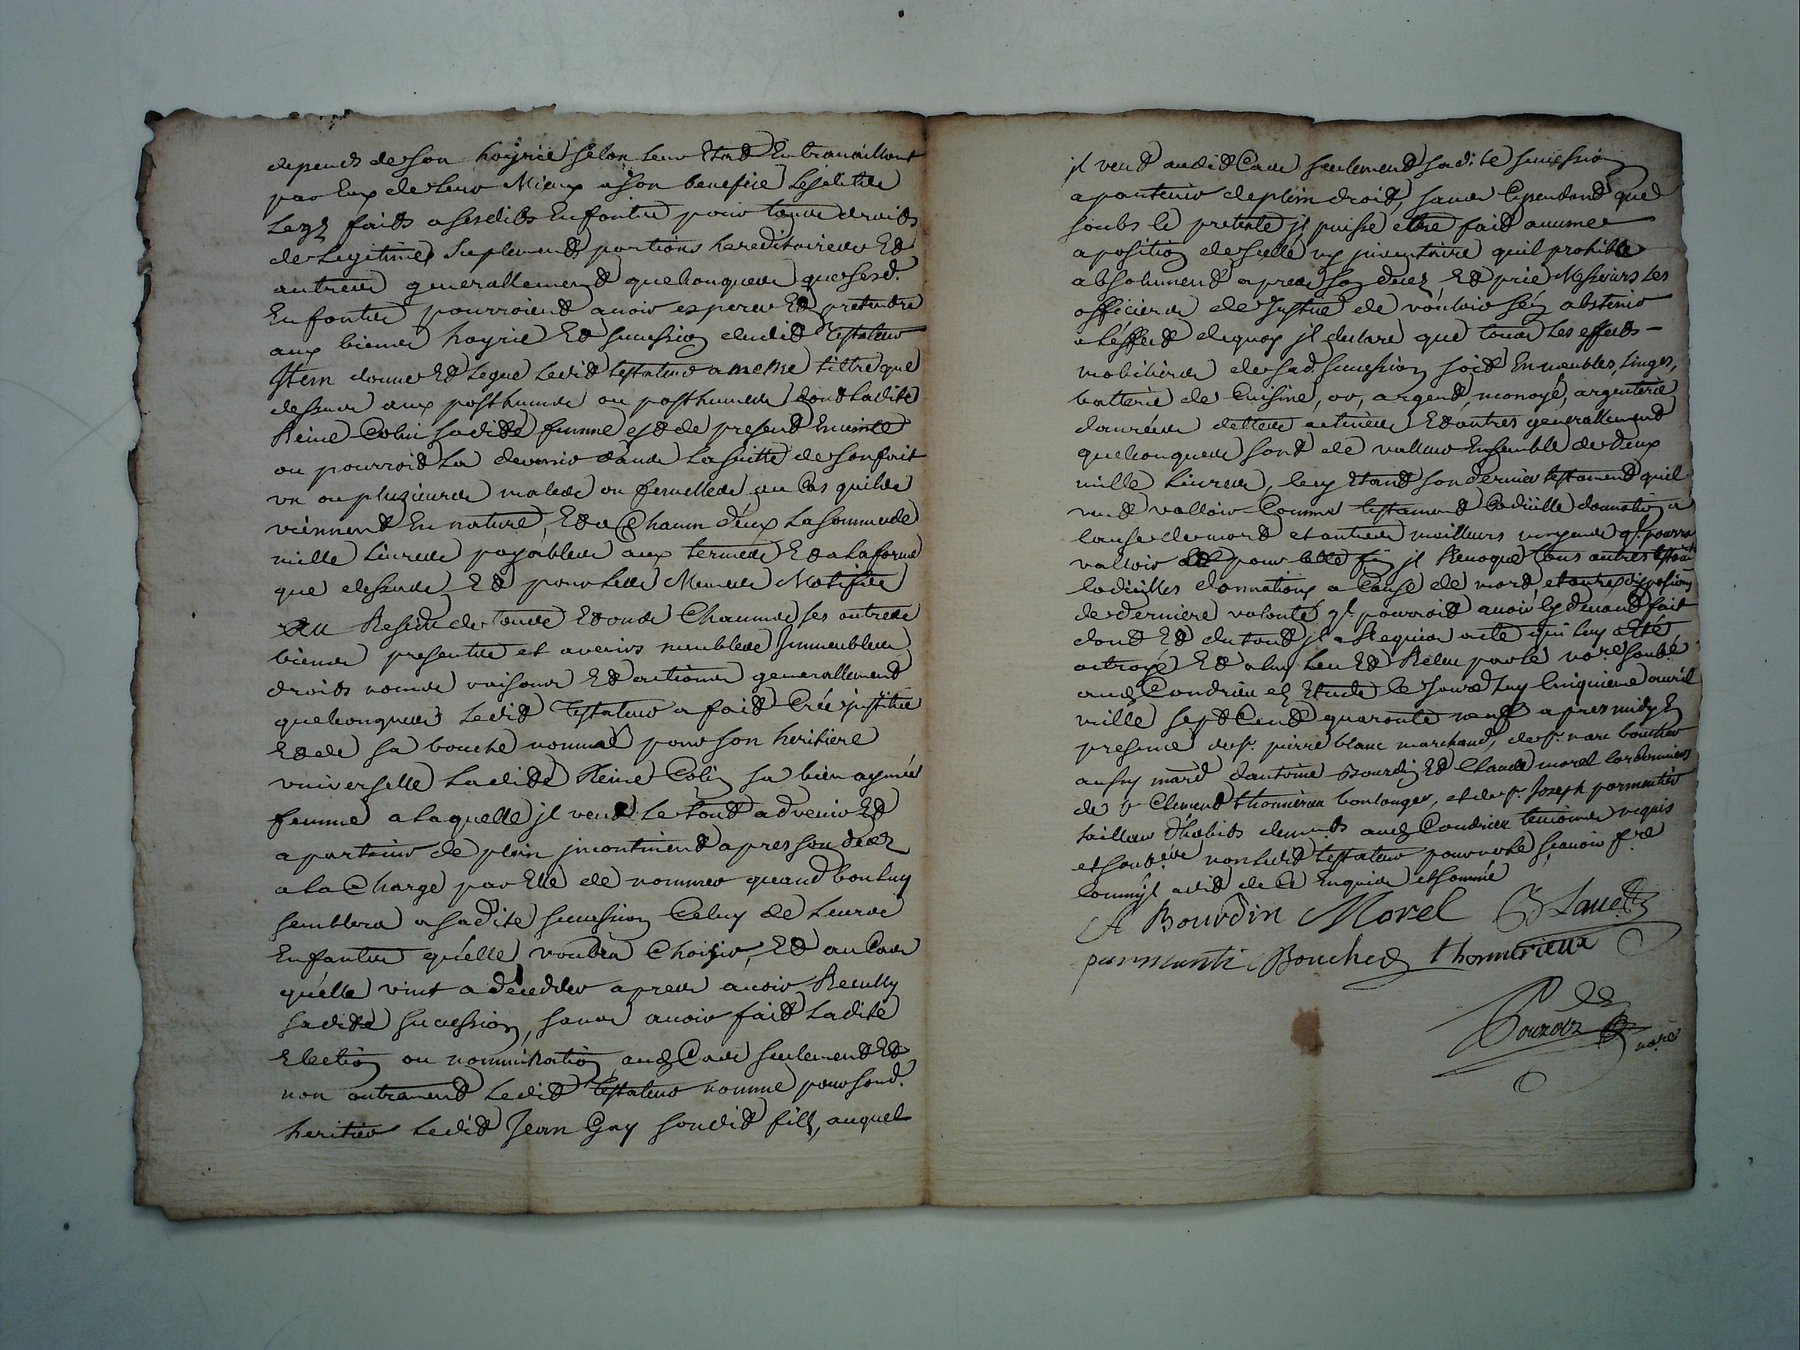 depends de son hoyrie selon leur Etad En travaillant
par Eux de leur Mieux a son benefice Lesdits
Legz faits a sesdits Enfants pour tous droits
de Legitime, Suplement, portions hereditaires Et
autres generallement quelconques que sesd.
Enfants pourroient avoir esperer Et pretendre
aux biens hoyrie Et succession dudit Testateur
Item donne Et Legue Ledit testateur a mesme tiltre que
dessus aux posthume ou posthumes dont Ladite
Reine Colin sadite femme est de present Enceinte
ou pourroit La devenir dans La suitte de son fait
vn ou pluzieurs males ou femelles au Cas quils
viennent En nature, Et a Chacun d'eux La somme de
mille Livres payables aux termes Et a La forme
que dessus Et pour Les Mesmes Motifs
Au Residu de tous Et vns Chacuns ses autres
biens presents et avenirs meubles Immeubles
droits noms raisons Et actions generallement
quelconques Ledit Testateur a fait Créé institué
Et de sa bouche nommé pour son heritiere
vniverselle Ladite Reine Colin sa bien aymée
femme a laquelle il veut Le tout advenir Et
apartenir de plein incontinent apres son decez
a La Charge par Elle de nommer quand bon Luy
semblera a sadite succession Celuy de Leurs
Enfants qu'elle voudra Choisir, Et au Cas
quelle vint a deceder apres avoir Recueilly
sadite succession, sans avoir fait Ladite
Election ou nomination, aud. Cas seulement Et
non autrement Ledit Testateur nomme pour sond.
heritier Ledit Jean Guy sondit fils, auquel
il veut audit Cas seulement sadite succession
apartenir de plein droit, sans Cependant que
soubs le pretexte il puisse etre fait aucune
aposition de scellé ny inventaire quil prohibe
absolument apres son decez Et prie Messieurs Les
officiers de Justice de vouloir s'en abstenir
a L'effect de quoy il declare que tous Les effects
mobiliers de sad. succession soit En meubles, linges,
batterie de Cuisine, or, argent, monoyé, argenterie
danrées dettes actives Et autres generallement
quelconques sont de valleur Ensemble de deux
mille Livres, Cecy Etant son dernier testament quil
veut valloir Comme testament Codicille donnation a
cause de mort et autres meilleurs moyens q. pourra
valloir Et pour cette fin il Revoque tous autres testam
codicilles donnations a Cause de mort et autres dispositions
de derniere volonté q. pourroit avoir cy devant fait
dont Et du tout il a Requis acte qui luy a Eté
octroyé Et a luy Leu Et Releu par le no.re soub.né
aud. Condrieu En Etude le jourdhuy Cinquieme avril
mille sept Cent quarante neuf apres midy En
presence de s.r pierre blanc marchand, de s.r marc boucher
aussy march d'antoine Bourdin Et Claude morel Cordonniers
de s.r Clement thonnerieux boulanger, et de s.r Joseph parmentier
tailleur d'habits demeurants aud. Condrieu temoins requis
et soub.nés non Ledit testateur pour ne le sçavoir f.re
comme il a dit de Ce Enquis et sommé
A Bourdin Morel B Lanc
parmanti Bouched thonnerieux
no.re